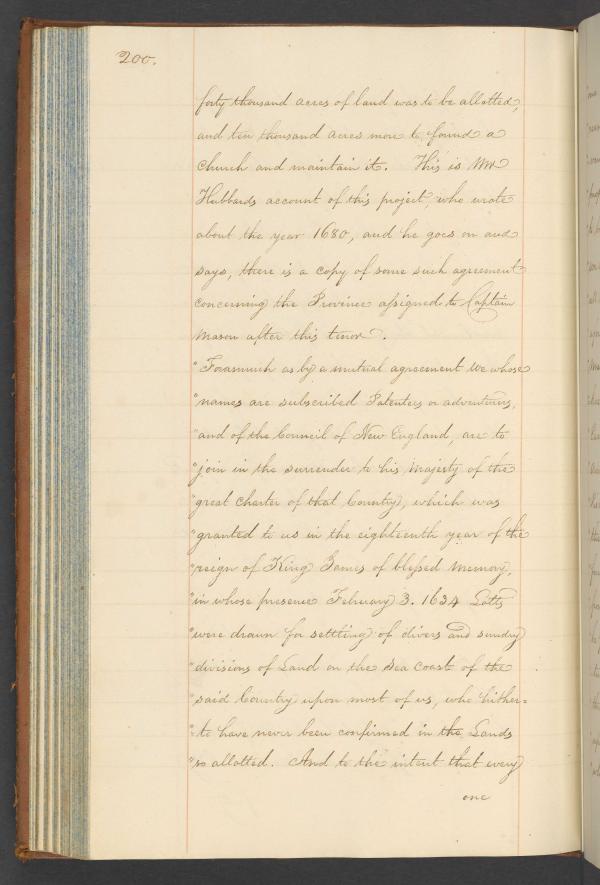 200.
forty thousand acres of land was to be allotted,
and ten thousand acres more to found a
Church and maintain it. This is Mr
Hubbards account of this project, who wrote
about the year 1680, and he goes on and
says, there is a copy of some such agreement
concerning the Province assigned to Captain
Mason after this tenor.
"Forasmuch as by a mutual agreement We whose
"names are subscribed Patentees or adventurers,
"and of the Council of New England, are to
"join in the surrender to his Majesty of the
"great Charter of that Country, which was
"granted to us in the eighteenth year of the
"reign of King James of blessed Memory,
"in whose presence February 3. 1634 Lotts
"were drawn for settling of divers and sundry
"divisions of Land on the Sea Coast of the
"said Country upon most of us, who hither=
"to have never been confirmed in the Lands
"so allotted. And to the intent that every
one